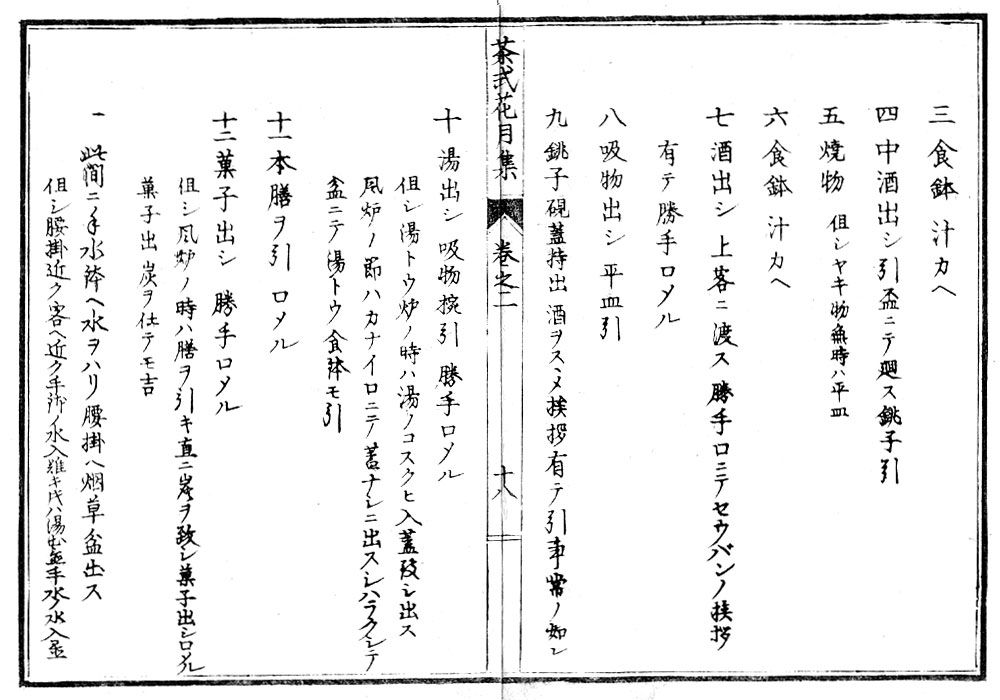 三 食鉢 汁カヘ
四 中酒出シ 引盃ニテ廻ス銚子引
五 焼物 但シヤキ物無時ハ平皿
六 食鉢 汁カヘ
七 酒出シ 上客ニ渡ス 勝手口ニテセウバンノ挨拶
有テ勝手口〆ル
八 吸物出シ 平皿引
九 銚子硯蓋持出 酒ヲスヽメ挨拶有テ引事常ノ如シ
茶式花月集 巻之二 十八
十 湯出シ 吸物椀引 勝手口〆ル
但シ湯トウ炉ノ時ハ湯ノコスクヒ入蓋致シ出ス
風炉ノ節ハカナイロニテ蓋ナシニ出スシハラクシテ
盆ニテ湯トウ食鉢モ引
十一 本膳ヲ引 口〆ル
十二 菓子出シ 勝手口〆ル
但シ風炉ノ時ハ膳ヲ引キ直ニ炭ヲ致シ菓子出シ口〆ル
菓子出 炭ヲ仕テモ吉
一 此間ニ手水鉢ヘ水ヲハリ腰掛ヘ烟草盆出ス
但シ腰掛近ク客ヘ近ク手鉢ノ水入難キ時ハ湯出シ手水ノ水入